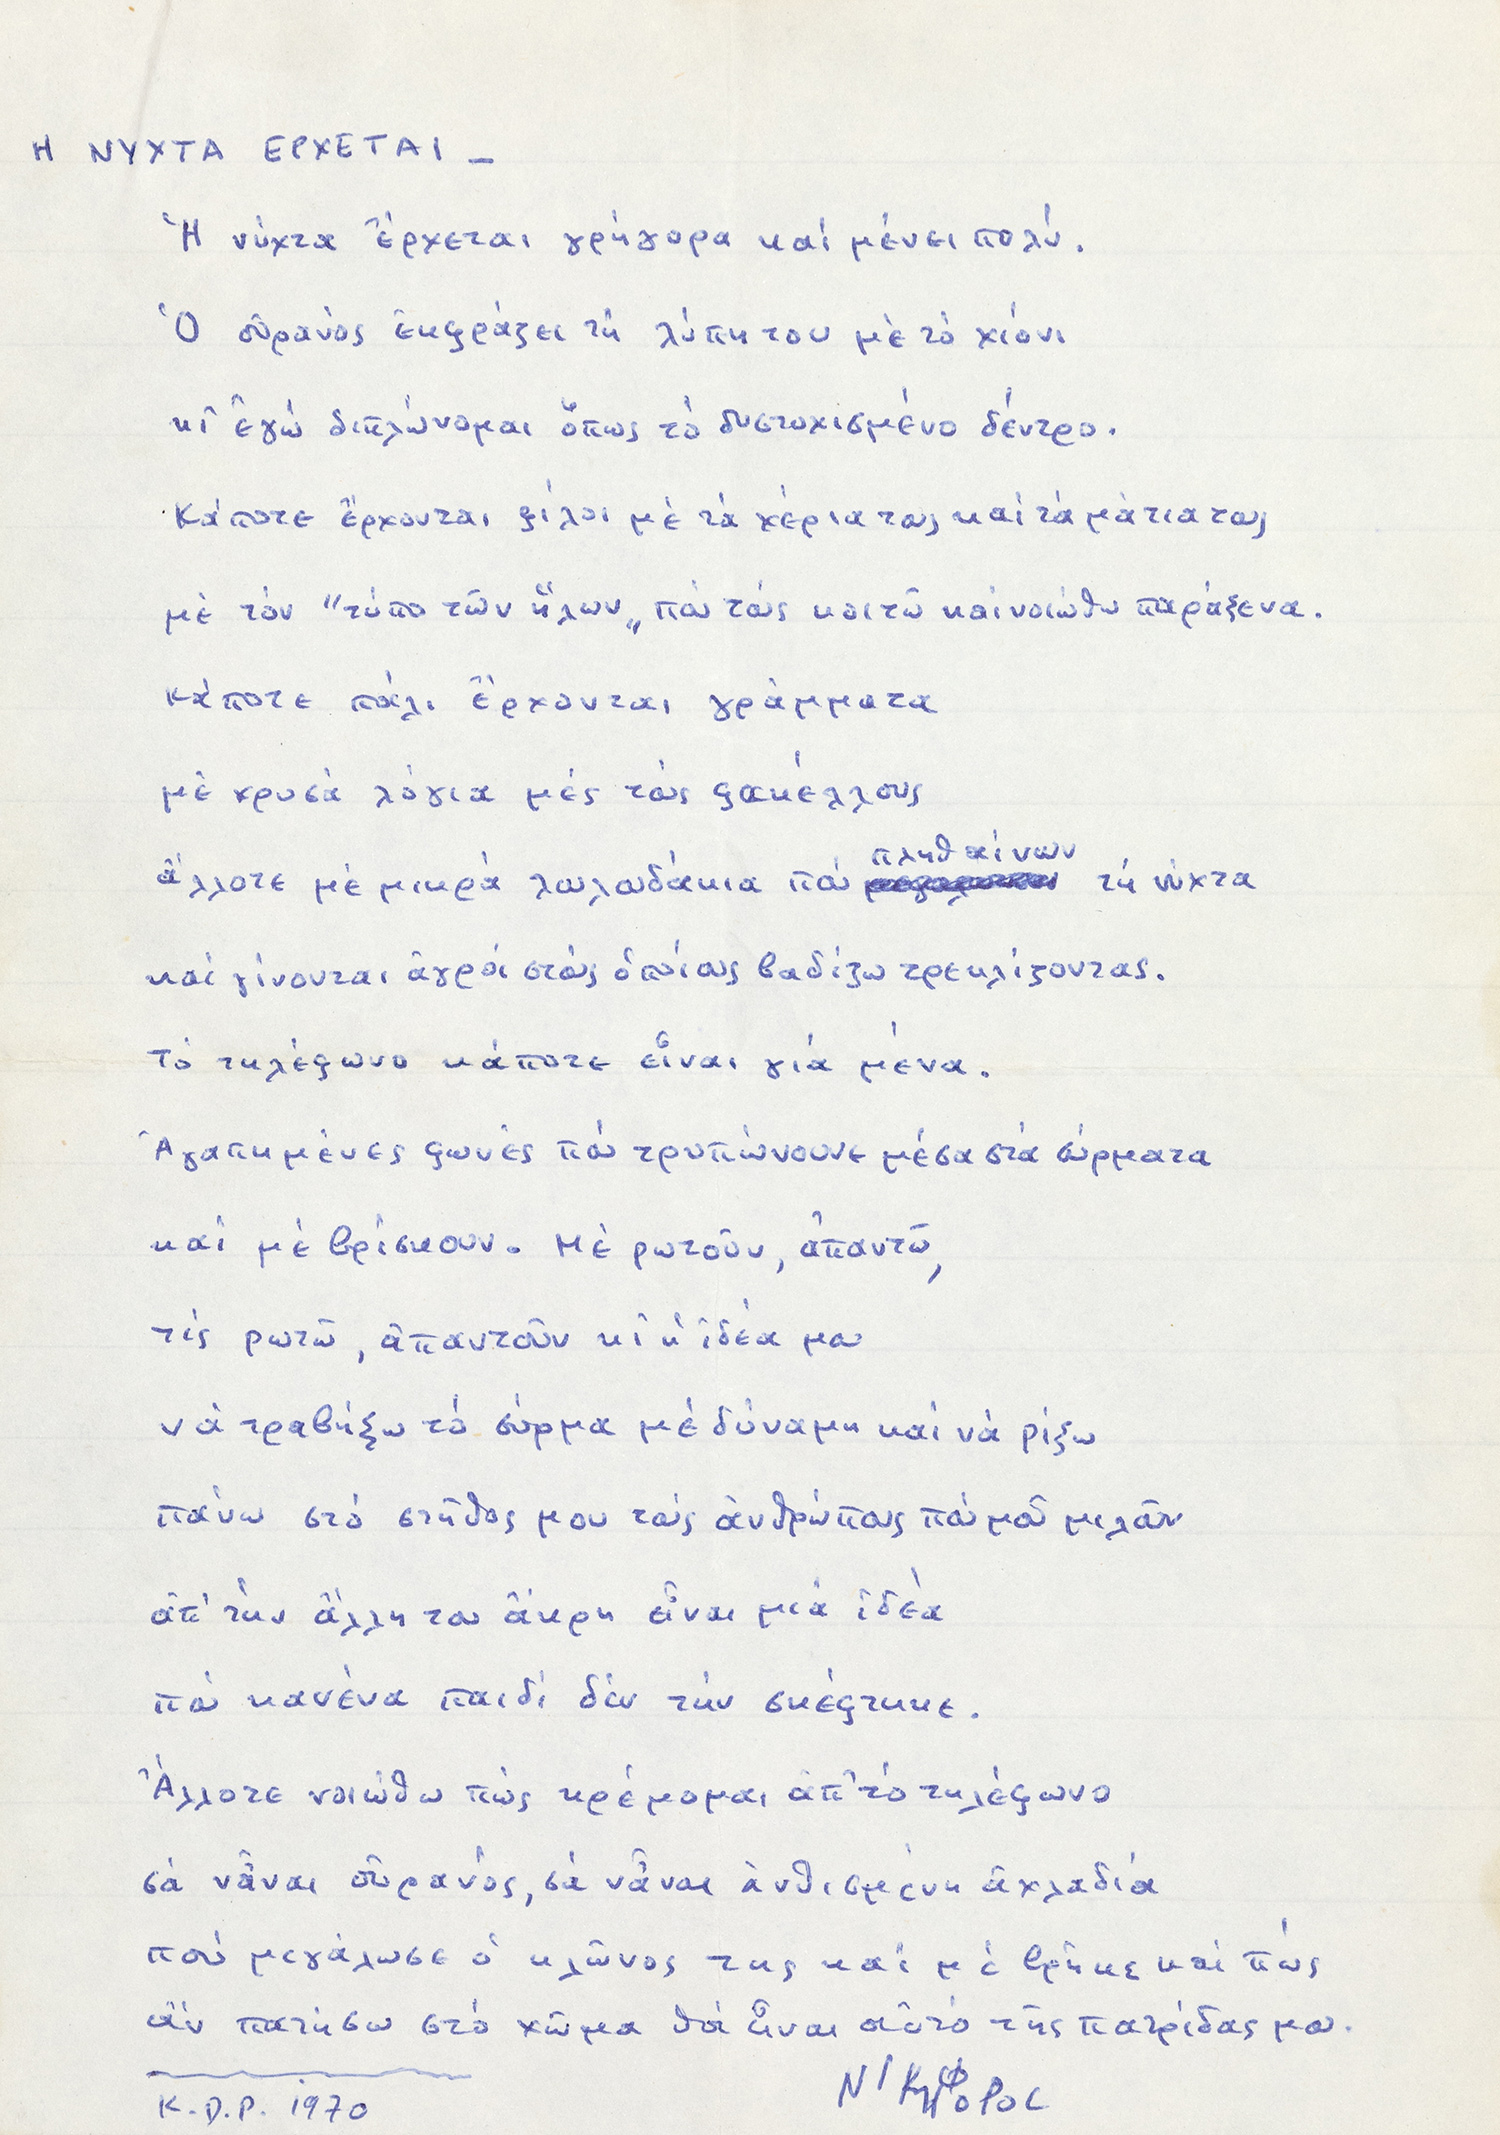 Η ΝΥΧΤΑ ΕΡΧΕΤΑΙ –
Ἡ νύχτα ἔρχεται γρήγορα καί μένει πολύ.
Ὁ οὐρανός ἐκφράζει τή λύπη του μέ τό χιόνι
κι ἐγώ διπλώνομαι ὅπως τό δυστυχισμένο δέντρο.
Κάποτε ἔρχονται φίλοι μέ τά χέρια τους καί τά μάτια τους
μέ τόν "τύπο τῶν ἥλων„ πού τούς κοιτῶ καί νοιώθω παράξενα.
Κάποτε πάλι ἔρχονται γράμματα
μέ χρυσά λόγια μές τούς φακέλλους
ἄλλοτε μέ μικρά λουλουδάκια πού πληθαίνουν τή νύχτα
καί γίνονται ἀγροί στούς ὁποίους βαδίζω τρεκλίζοντας.
Τό τηλέφωνο κάποτε εἶναι γιά μένα.
Ἀγαπημένες φωνές πού τρυπώνουνε μέσα στά σύρματα
καί μέ βρίσκουν. Μέ ρωτοῦν, ἀπαντῶ,
τίς ρωτῶ, ἀπαντοῦν κι ἡ ἰδέα μου
νά τραβήξω τό σύρμα μέ δύναμη καί νά ρίξω
πάνω στό στῆθος μου τούς ἀνθρώπους πού μοῦ μιλᾶν
ἀπ' τήν ἄλλη του ἄκρη εἶναι μιά ἰδέα
πού κανένα παιδί δέν τήν σκέφτηκε.
Ἄλλοτε νοιώθω πώς κρέμομαι ἀπ' τό τηλέφωνο
σά νἆναι οὐρανός, σά νἆναι ἀνθισμένη ἀχλαδιά
πού μεγάλωσε ὁ κλῶνος της καί μέ βρῆκε καί πώς
ἄν πατήσω στό χῶμα θά εἶναι αὐτό τῆς πατρίδας μου.
Κ.D.P. 1970
ΝΙΚΗΦΟΡΟΣ